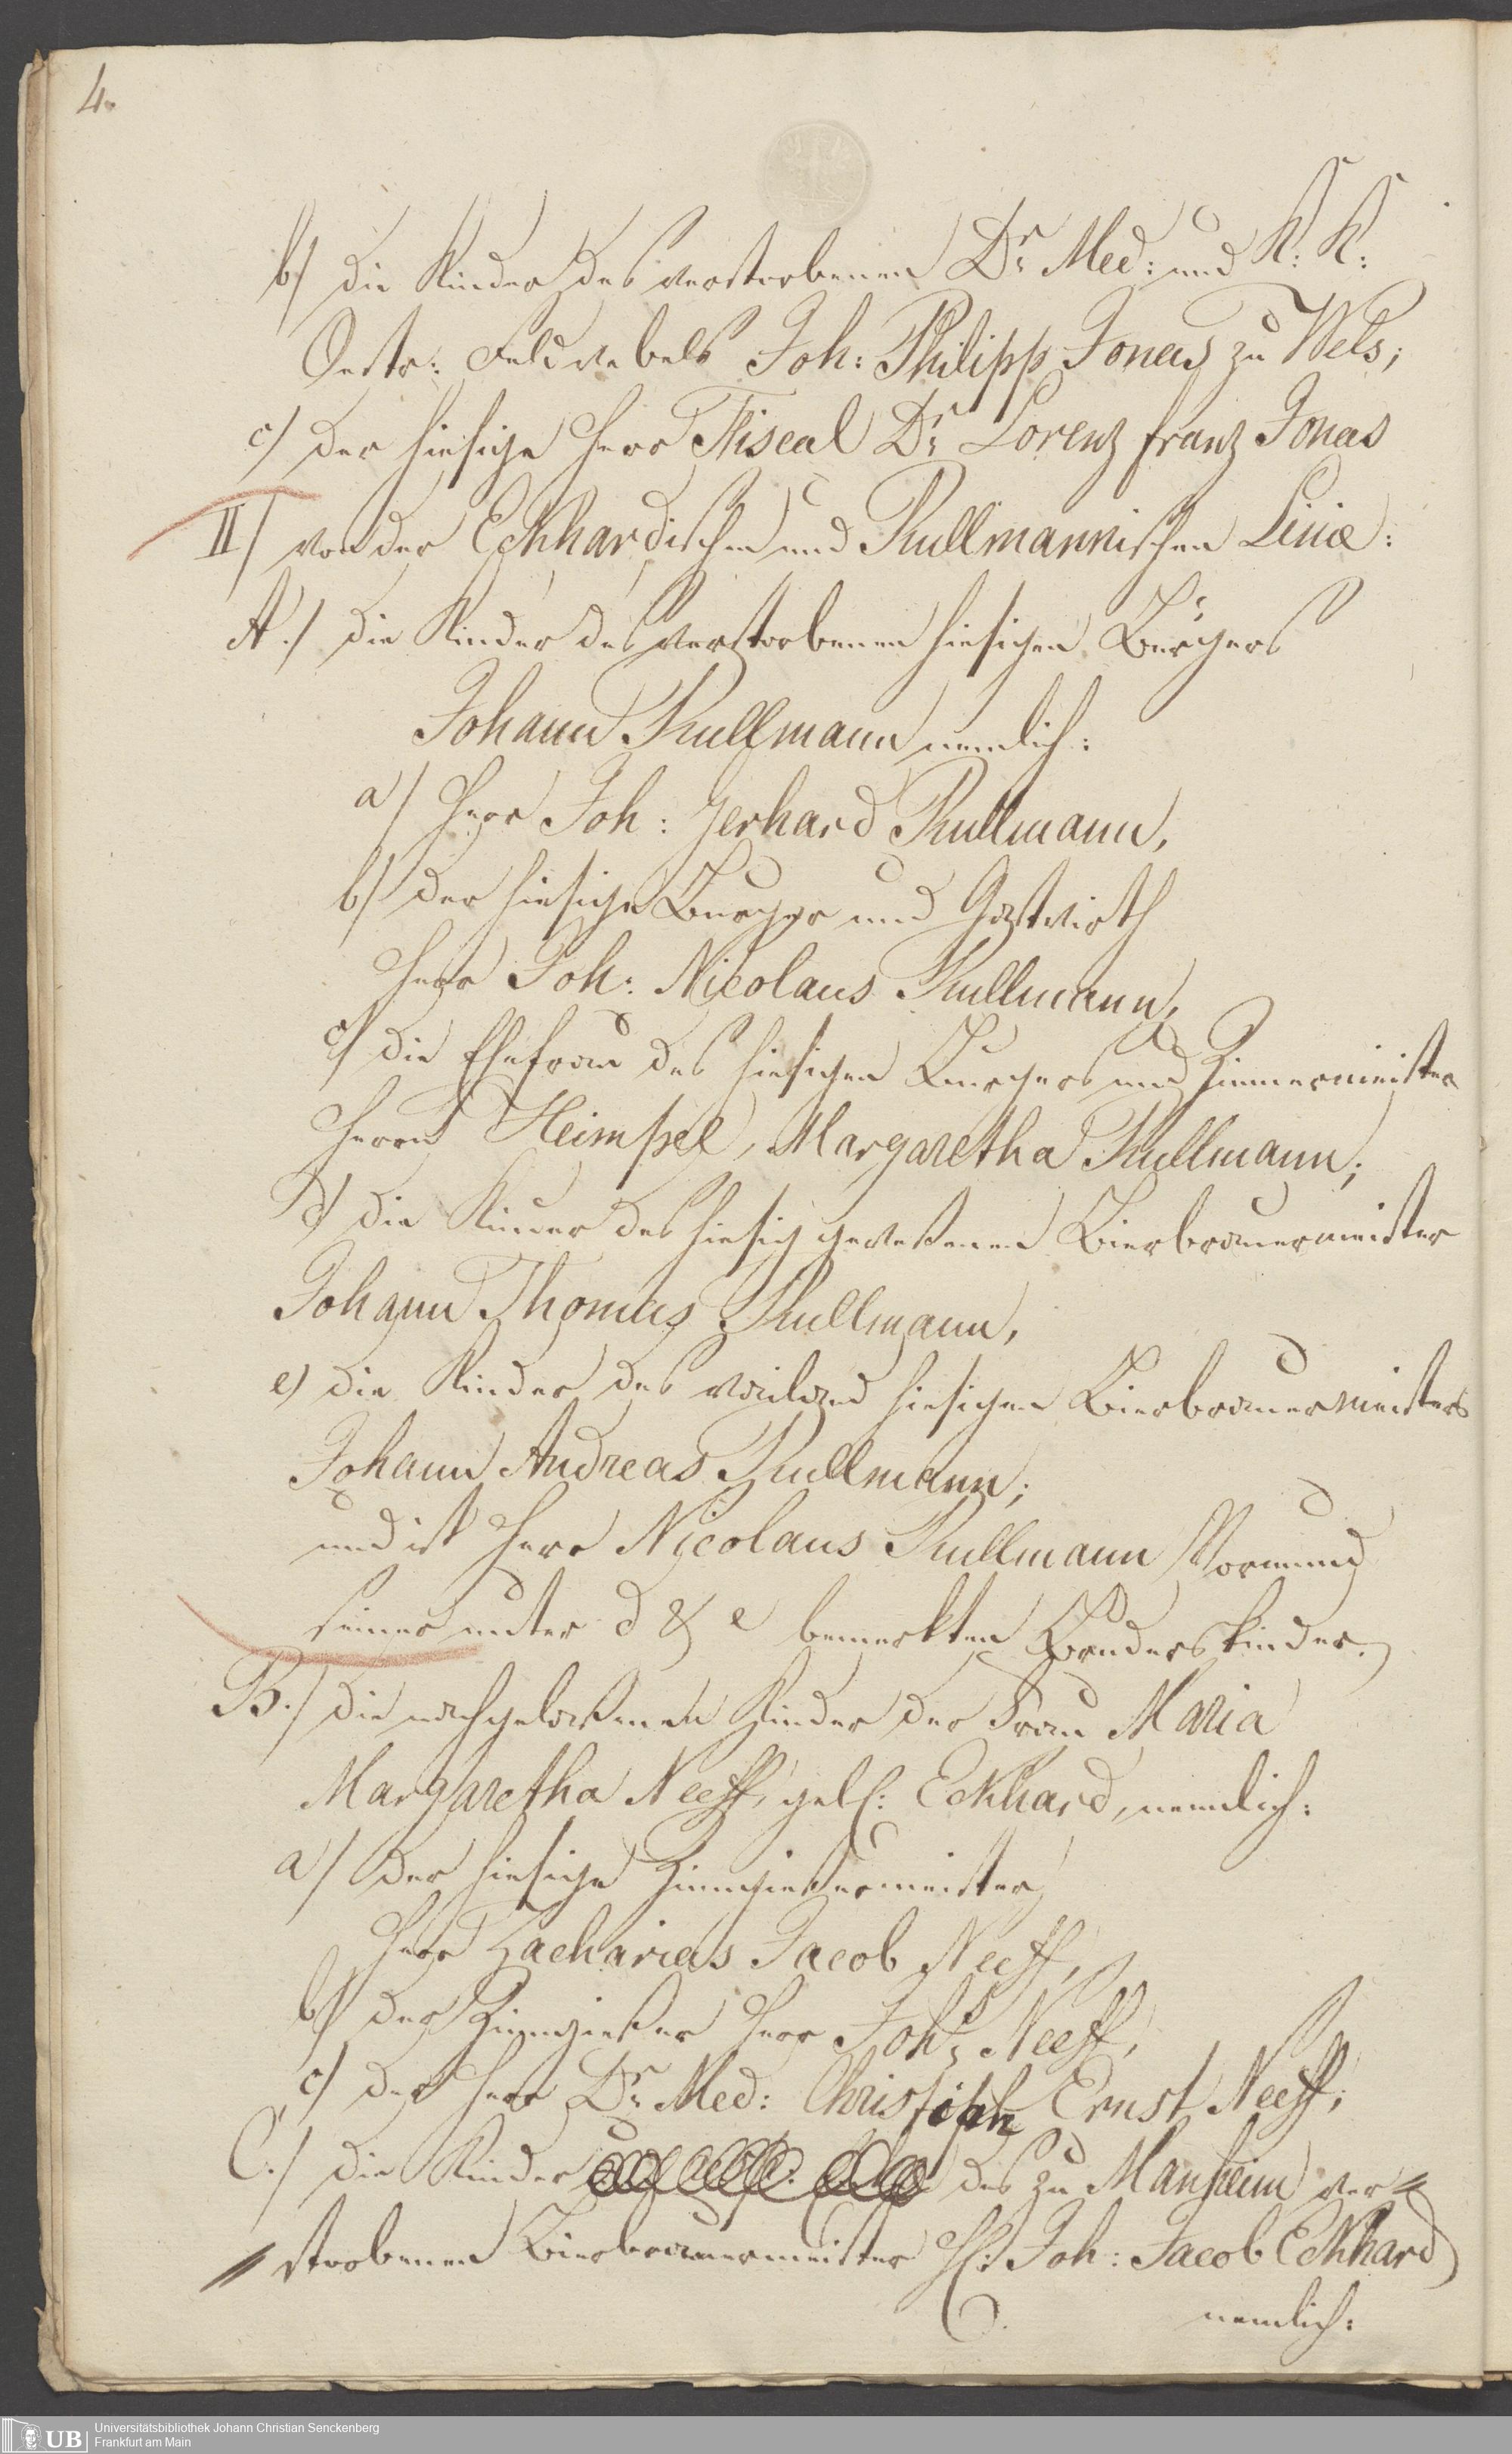 4.
b) die Kinder des verstorbenen Dr Med: und K: K:
Oestr: Feldwebels Joh: Philipp Jonas zu Wels;
c) der hiesige Herr Fiscal Dr Lorenz Franz Jonas
II) von der Eckhardischen und Kullmannischen Linie:
A.) die Kinder des verstorbenen hiesigen Bürgers
Johann Kullmann nemlich:
a) Herr Joh: Gerhard Kullmann,
b) der hiesige Burger und Gastwirth
Herr Joh: Nicolaus Kullmann,
c) die Ehefrau des hiesigen Burgers und Zimmermeister
Herrn Heimpel, Margaretha Kullmann;
d) die Kinder des hiesig gewesenen Bierbrauermeister
Johann Thomas Kullmann,
e) die Kinder des weiland hiesigen Bierbrauermeisters
Johann Andreas Kullmann;
und ist Herr Nicolaus Kullmann Vormund
seiner unter d & e bemerkten Bruderskinder.
B.) die nachgelassenen Kinder der Frau Maria
Margaretha Neeff, geb: Eckhard, nemlich:
a) der hiesige Zinngiesermeister
Herr Zacharias Jacob Neeff,
b) der Zinngieser Herr Joh: Neeff,
c) der Herr Dr Med: Christian Ernst Neeff;
C.) die Kinder des zu Manheim ver=
=storbenen Bierbrauermeister H: Joh: Jacob Eckhard
nemlich:
UB
Universitätsbibliothek Johann Christian Senckenberg
Frankfurt am Main